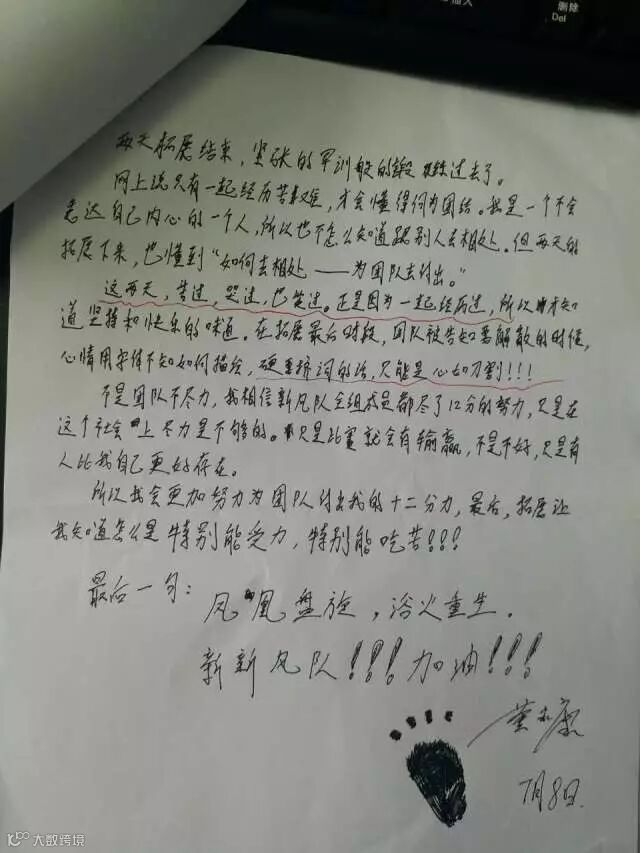 插入
删除
Del
两天拓展结束，紧张的军训般的锻 过去了。
网上说只有一起经历苦难，才会懂得何为团结。我是一个不会
表达自己内心的一个人，所以也不怎么知道跟别人去相处。但两天的
拓展下来，也懂到“如何去相处——为团队去付出。”
这两天，苦过，哭过，也笑过。正是因为一起经历过，所以 才知
道坚持和快乐的味道。在拓展最后时段，团队被告知要解散的时候，
心情用字体不知如何描绘，硬要择词的话，只能是心如刀割!!!
不是团队不尽力，我相信新凤队全组成员都尽了12分的努力，只是在
这个社会上尽力是不够的。只是比赛就会有输赢，不是不好，只是有
人比我自己更好存在。
所以我会更加努力为团队付出我的十二分力，最后，拓展让
我知道怎么是特别能受力，特别能吃苦!!!
最后一句：
凤凰盘旋，浴火重生.
新新凤队!!!加油!!!
康
7月8日.
10100 大数跨境